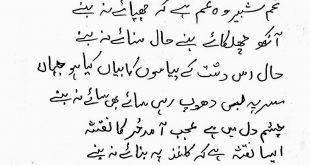 غم شبیر وہ غم ہے کہ چھپائے نہ بنے
آنکھ چھلکائے بنے حال سنائے نہ بنے
حال اس دشت کے پیاسوں کا بیاں کیا ہو جہاں
سر پہ بس دھوپ رہی سائے بھی سائے نہ بنے
چشم دل میں ہے عجب آمد حر کا نقشہ
ایسا نقشہ ہے کہ کاغذ پہ بنائے نہ بنے